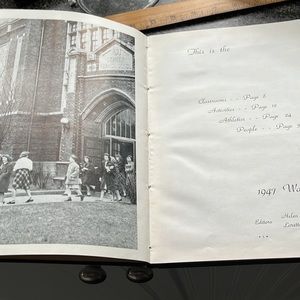 This is the
Classrooms - - Page 5
Activities - - Page
Athletics - - Page 24
People - - Page
1947
Editors Helen